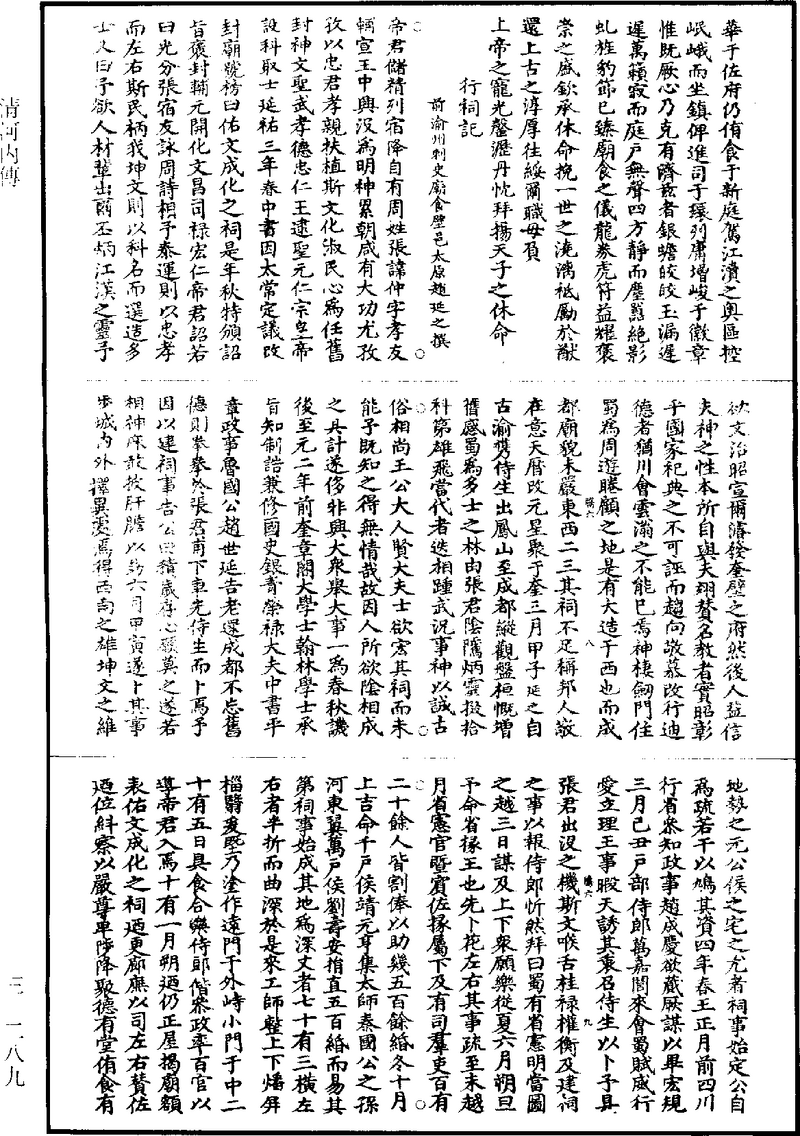 華于佐府仍侑食于新庭駕江瀆之輿區控
岷峨而坐鎮俾進司于環列庸增峻于徽章
惟既厥心乃克有濟茲者銀蟾皎皎玉漏遲
遲萬籟寂而庭戶無聲四方靜而塵囂絕影
虬旌豹節已臻廟食之儀龍券虎符益耀褒
崇之盛欽承休命挽一世之澆漓祗勵於猷
還上古之淳厚往綏爾職毋負
上帝之寵光罄瀝丹忱拜揚天子之休命
行祠記
前渝州刺史廟食壁邑太原趙延之撰
帝君儲精列宿降自有周姓張諱仲字孝友
輔宣王中興沒為明神累朝咸有大功尤孜
孜以忠君孝親扶植斯文化淑民心為任舊
封神文聖武孝德忠仁王逮聖元仁宗皇帝
設科取士延祐三年春中書因太常定議改
封廟號榜曰佑文成化之祠是年秋特頒詔
旨褒封輔元開化文昌司祿宏仁帝君詔若
曰光分張宿友詠周詩相予泰運則以忠孝
而左右斯民柄我坤文則以科名而選造多
士又曰予欲人材輩出爾丕炳江漢之靈予
欲文治昭宣爾濬發奎璧之府然後人益信
夫神之性本所自與夫翊贊名教者實昭彰
乎國家祀典之不可誣而趨向敬慕改行迪
德者猶川會雲滃之不能已焉神棲劒門住
蜀為周遊騰顧之地是有大造于西也而成
都廟貌未嚴東西二三其祠不足稱邦人敬
在意天曆改元星聚于奎三月甲子延之自
古渝携侍生出鳳山至成都縱觀盤桓慨增
舊感蜀為多士之林由張君陰隲炳靈掇拾
科第雄飛當代者迭相踵武況事神以誠古
俗相尚王公大人賢大夫士欲宏其祠而未
能予既知之得無情哉故因人所欲陰相成
之具計遂侈非興大衆舉大事一為春秋譏
後至元二年前奎章閣大學士翰林學士承
旨知制誥兼修國史銀青榮祿大夫中書平
章政事魯國公趙世延告老還成都不忘舊
德則拳拳於張君甫下車先侍生而卜焉予
因以建祠事告公曰積歲存心發莫之遂若
相神庥敢披肝膽以勗六月甲寅遂卜其事
步城內外擇異處焉得西南之雄坤文之維
地勢之元公侯之宅之尤者祠事始定公自
為疏若干以鳩其資四年春王正月前四川
行省參知政事趙成慶欲蕆厥謀以畢宏規
三月己丑戶部侍郎萬嘉閭來會蜀賦威行
愛立理王事暇天誘其衷召侍生以卜予具
張君出沒之機斯文喉舌桂祿權衡及建祠
之事以報侍郎忻然拜曰蜀有省憲明當圖
之越三日謀及上下衆願樂從夏六月朔旦
予命省掾王也先卜花左右其事疏至末越
月省憲官暨賓佐掾屬下及有司羣吏百有
二十餘人皆割俸以助幾五百餘緡冬十月
上吉命千戶侯靖元亨集太師秦國公之孫
河東翼萬戶侯劉壽安捐直五百緡而易其
第祠事始成其地為深丈者七十有三橫左
右者半折而曲深於是來工師整上下燔屏
榴翳爰墍乃塗作遠門于外峙小門于中二
十有五日具食合樂侍郎偕參政率百官以
導帝君入焉十有一月朔迺仍正屋揭廟額
表佑文成化之祠迺更廊廡以司左右贊佐
迺位糾察以嚴尊卑陟降聚德有堂侑食有
清河內傳
三一一八九